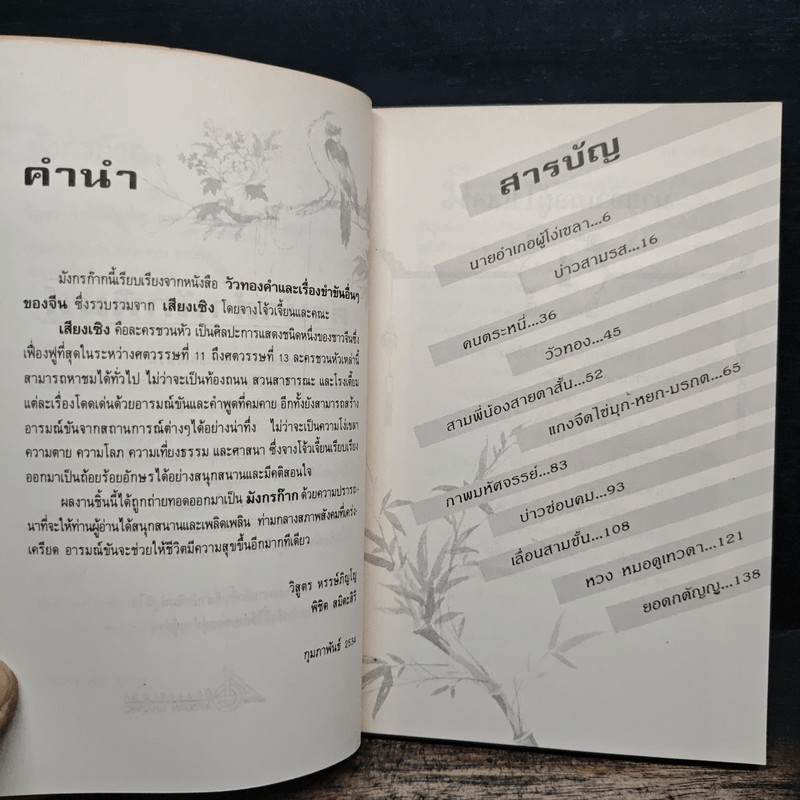 คำนำ
มังกรก๊ากนี้เรียบเรียงจากหนังสือ วัวทองคำและเรื่องขำขันอื่นๆ
ของจีน ซึ่งรวบรวมจาก เสียงเซิง โดยจางโจ้วเจี้ยนและคณะ
เสียงเซิง คือละครชวนหัว เป็นศิลปะการแสดงชนิดหนึ่งของชาวจีนซึ่ง
เฟื่องฟูที่สุดในระหว่างศตวรรษที่ 11 ถึงศตวรรษที่ 13 ละครชวนหัวเหล่านี้
สามารถหาชมได้ทั่วไป ไม่ว่าจะเป็นท้องถนน สวนสาธารณะ และโรงเตี๊ยม
แต่ละเรื่องโดดเด่นด้วยอารมณ์ขันและคำพูดที่คมคาย อีกทั้งยังสามารถสร้าง
อารมณ์ขันจากสถานการณ์ต่างๆได้อย่างน่าทึ่ง ไม่ว่าจะเป็นความโง่เขลา
ความตาย ความโลภ ความเที่ยงธรรม และศาสนา ซึ่งจางโจ้วเจี้ยนเรียบเรียง
ออกมาเป็นถ้อยร้อยอักษรได้อย่างสนุกสนานและมีคติสอนใจ
ผลงานชิ้นนี้ได้ถูกถ่ายทอดออกมาเป็น มังกรก๊าก ด้วยความปรารถ-
นาที่จะให้ท่านผู้อ่านได้สนุกสนานและเพลิดเพลิน ท่ามกลางสภาพสังคมที่เคร่ง-
เครียด อารมณ์ขันจะช่วยให้ชีวิตมีความสุขขึ้นอีกมากทีเดียว
วิสูตร หรรษ์ภิญโญ
พิชิต สมิตะสิริ
กุมภาพันธ์ 2534
สารบัญ
นายอำเภอผู้โง่เขลา...6
บ่าวสามรส...16
คนตระหนี่...36
วัวทอง...45
สามพี่น้องสายตาสั้น...52
แกงจืดไข่มุก-หยก-มรกต...65
ภาพมหัศจรรย์...83
บ่าวซ่อนคม...93
เลื่อนสามขั้น...108
หวง หมอดูเทวดา...121
ยอดกตัญญู...138